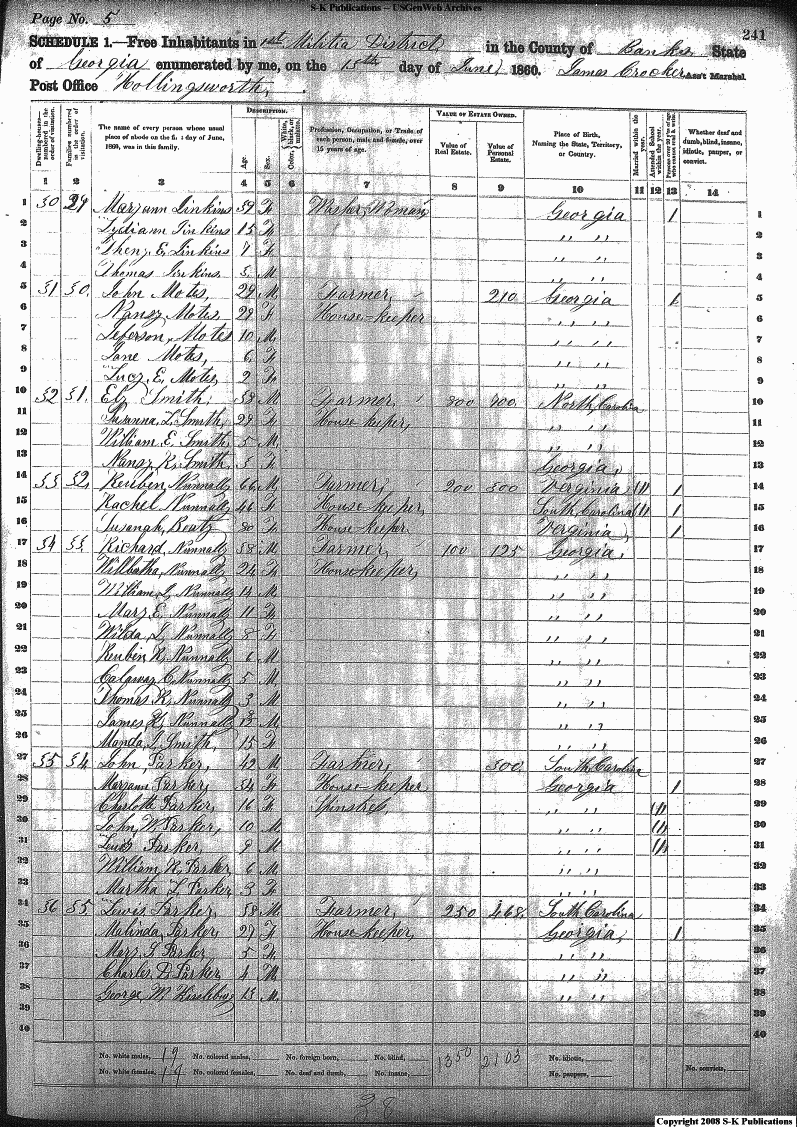 S-K Publications -- USGenWeb Archives
Page No. 5
241
SCHEDULE 1.—Free Inhabitants in 1st Militia District in the County of Banks State
of Georgia enumerated by me, on the 15th day of June, 1860. James Crocker Ass't Marshal.
Post Office Hollingsworth,
Dwelling-houses—numbered in the order of visitation.
Families numbered in the order of visitation.
The name of every person whose usual place of abode on the first day of June, 1860, was in this family.
DESCRIPTION.
Age.
Sex.
Color, White, black, or mulatto.
Profession, Occupation, or Trade of each person, male and female, over 15 years of age.
VALUE OF ESTATE OWNED.
Value of Real Estate.
Value of Personal Estate.
Place of Birth, Naming the State, Territory, or Country.
Married within the year.
Attended School within the year.
Persons over 20 y'rs of age who cannot read & write.
Whether deaf and dumb, blind, insane, idiotic, pauper, or convict.
1 2 3 4 5 6 7 8 9 10 11 12 13 14
1 50 29 Maryann Jinkins 59 F Washer Woman Georgia / 1
2 Lydiann Jinkins 15 F " " 2
3 E. Jinkins 7 F " " 3
4 Thomas Jinkins M " " 4
5 51 50. John Motes, 29 M Farmer, 210 Georgia / 5
6 Nansy Motes, 29 F House-keeper " " 6
7 Jeferson, Motes 10 M " " 7
8 Jane Motes, 6 F " " 8
9 Lucy E. Motes, 2 F " " 9
10 52 51. Smith, M Farmer, 900. North Carolina 10
11 Susanna L. Smith, 29 F House keeper, " " 11
12 William E. Smith, 5 M " " 12
13 Nansy K. Smith, F Georgia, 13
14 53 52 Reuben, Nunnally 66 M Farmer, 200 Verginia / / 14
15 Rachel Nunnally 46 F House-keeper South, Carolina / / 15
16 Susanah, 80 F House-keeper Verginia / 16
17 54 53. Richard, Nunnally M Farmer, 100 125 Georgia, 17
18 Nunnally, 24 F House-keeper, " " 18
19 William Nunnally 14 M " " 19
20 Mary E. Nunnally 11 F " " 20
21 Wilda Nunnally 8 F " " 21
22 Reuben R. Nunnally 6 M " " 22
23 Calaway C. Nunnally 5 M " " 23
24 Thomas K. Nunnally 3 M " " 24
25 James Nunnally M " " 25
26 Smith, 15 F " " 26
27 55 54 John, Parker, 42 M Farmer, South, Carolina 27
28 Maryann Parker, F House-keeper Georgia / 28
29 Charlott Parker, 16 F Spinster, " " / 29
30 John W. Parker, 10 M " " / 30
31 Parker, 9 M " " / 31
32 William R. Parker 6 M " " 32
33 Martha L. Parker 3 F " " 33
34 56 55. Lewis Parker, M Farmer, 250 468. South, Carolina 34
35 Malinda, Parker 27 F House-keeper, Georgia, / 35
36 Mary S. Parker 5 F " " 36
37 Charles D. Parker 4 M " " 37
38 George M. M. " " 38
39 39
40 40
No. white males, 19 No. colored males, No. foreign born, No. blind, 1350 2103 No. idiotic,
No. white females, 19 No. colored females, No. deaf and dumb, No. insane, No. paupers, No. convicts,
38
Copyright 2008 S-K Publications